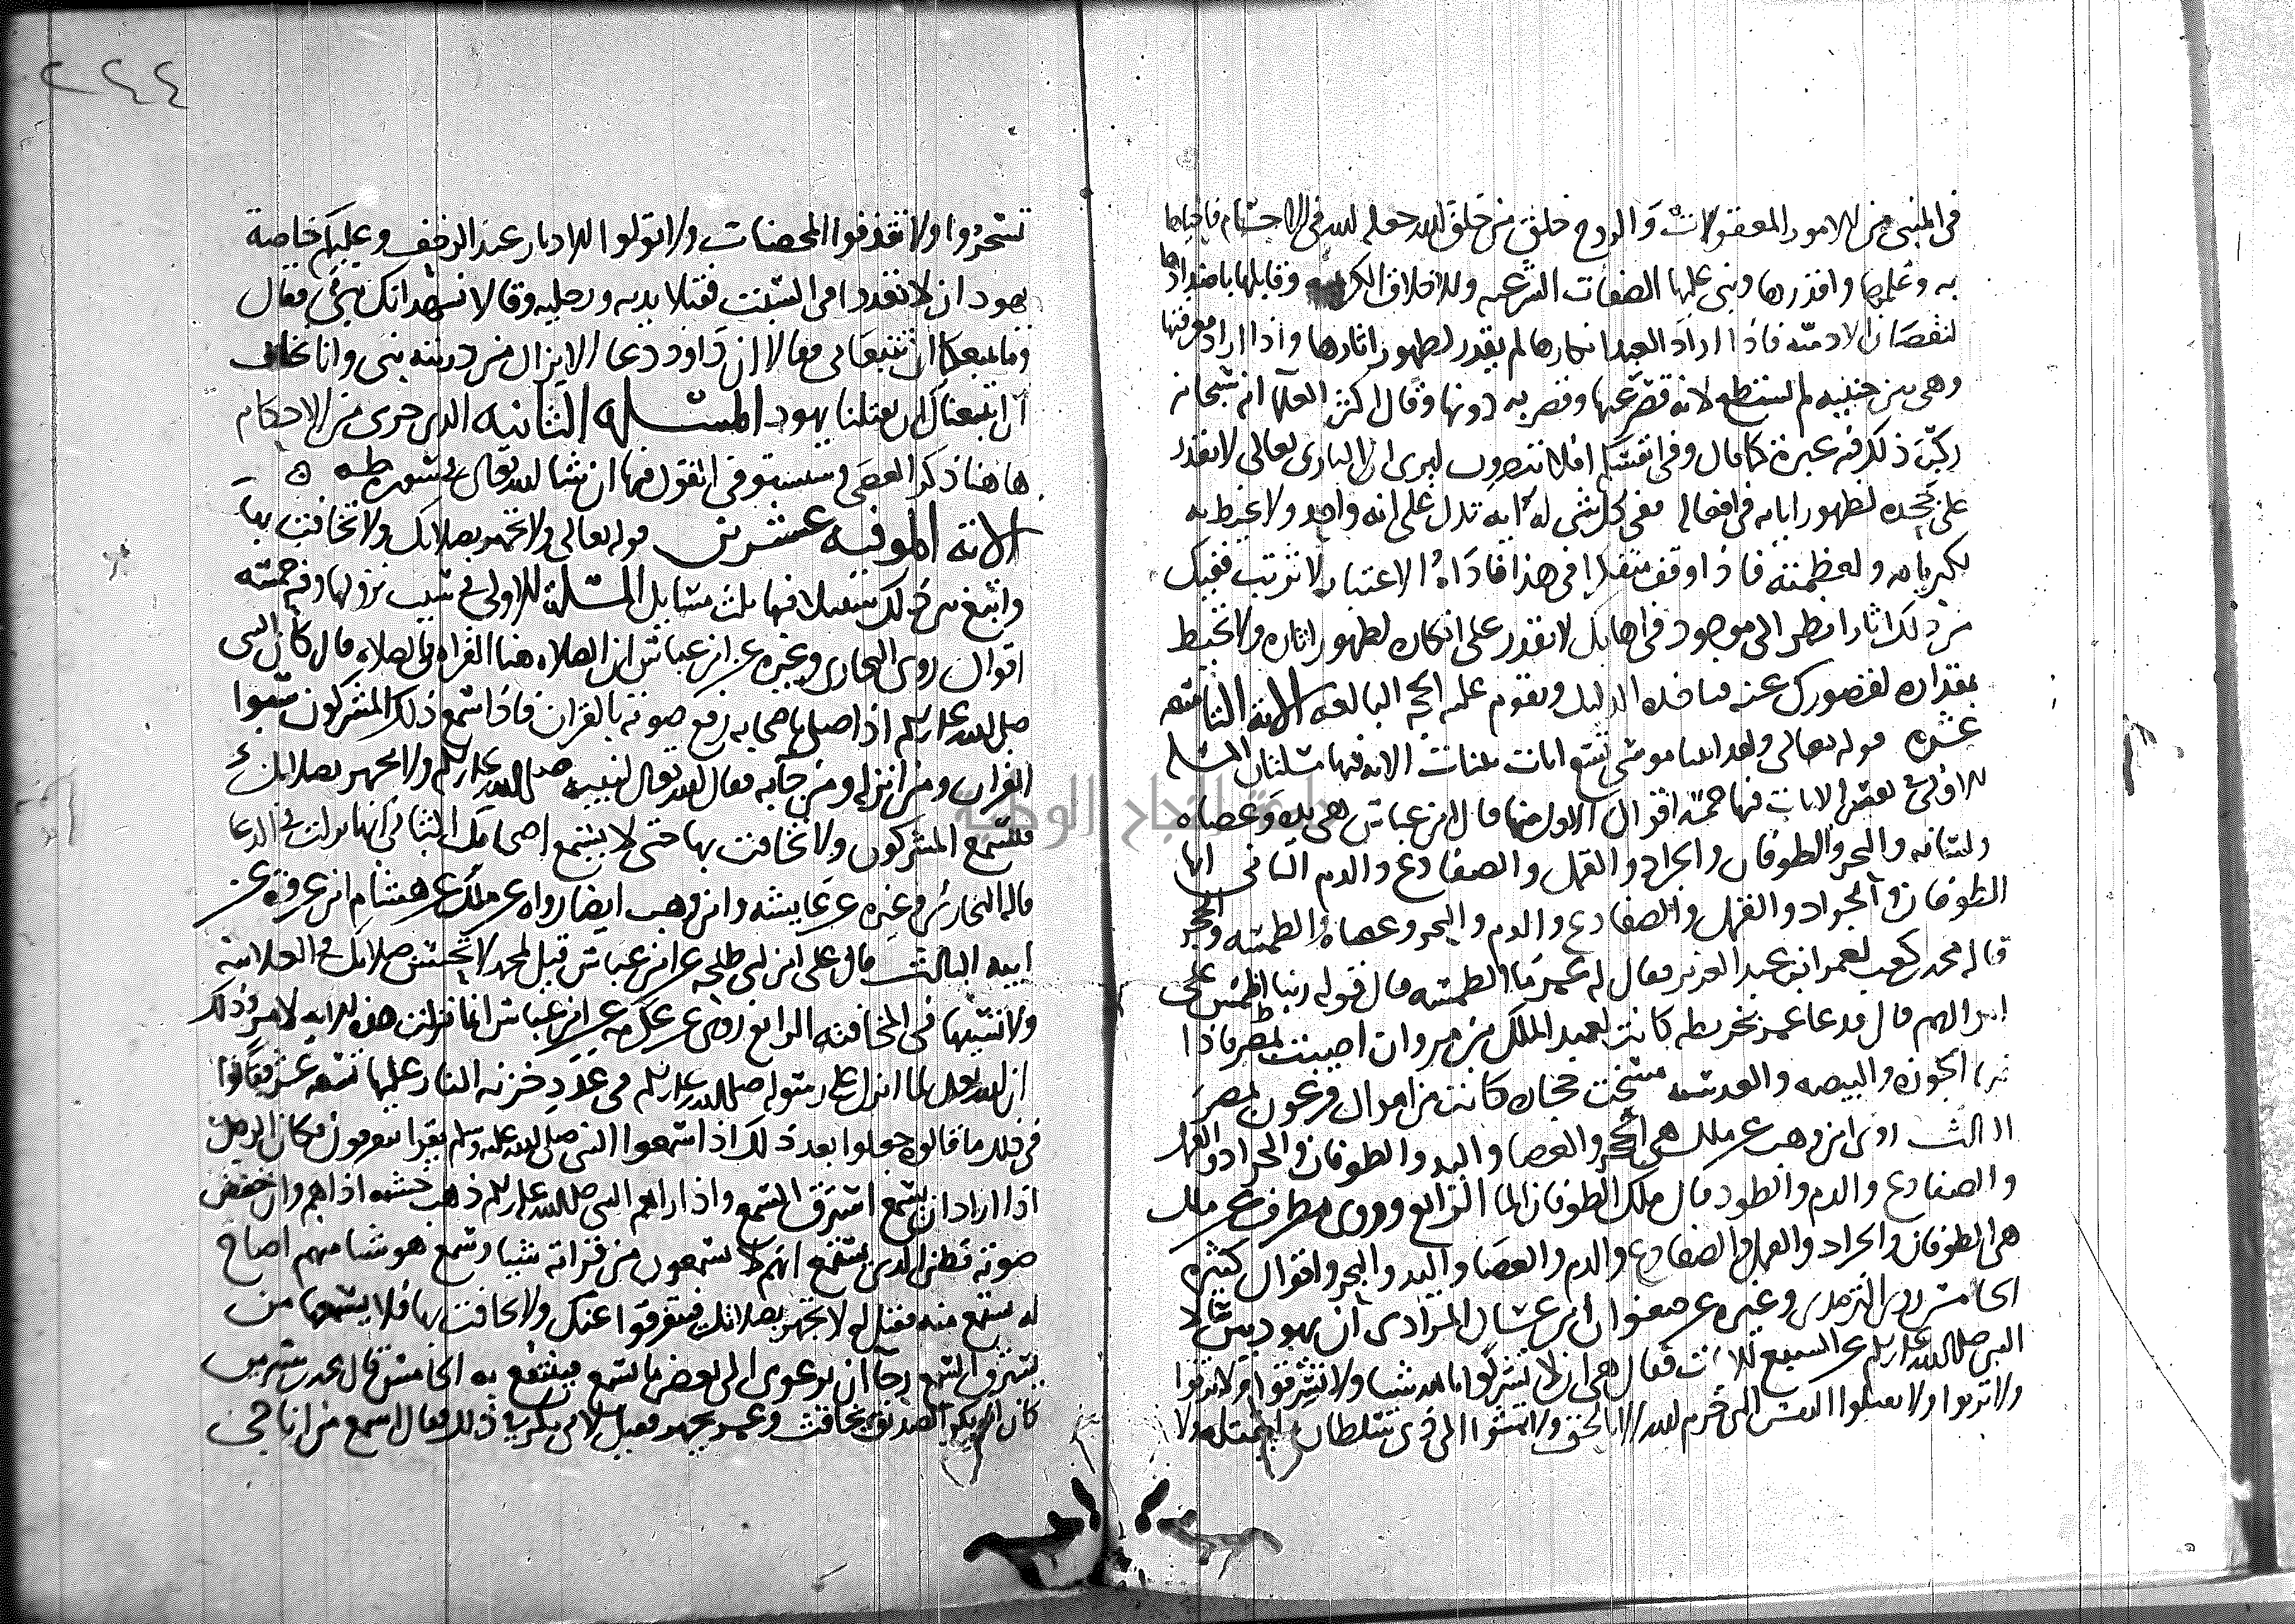 في المبنى من الامور المعقولات والروح خلق من خلق الله جعله الله في الاجسام فاحياها
به وعلمها واقدرها وبنى عليها الصفات الشرعيه والاخلاق الكريمه وقابلها باضدادها
لنقصان الادميه فاذا اراد العبد انكارها لم يقدر لظهور اثارها واذا اراد معرفتها
وهي بين جنبيه لم يستطع لانه قصر عنها وقصر به دونها وقال اكثر العلما انه سبحانه
ركب ذلك فيه عبرة كما قال وفي انفسكم افلا تبصرون ليرى ان الباري تعالى لا يقدر
على جحده لظهور اياته في افعاله ففي كل شي له ايه تدل على انه واحد ولا يحيط به
لكبريايه ولعظمته فاذا وقف متفكرا في هذا فاداه الاعتبار لا ترتيب ففيك
من ذلك اثارا نظر الى موجود في اهابك لا تقدر على انكاره لظهور اثاره ولا تحيط
بمقداره لقصورك عنه فياخده الدليل ويقوم عليه الحجه البالغه الايه التاسعه
عشره قوله تعالى ولقد اتينا موسى تسع ايات بينات الايه فيها مسلتان المسله
الاولى في تفسير الايات فيها خمسه اقوال الاول منها قال ابن عباس هي يده وعصاه
ولسانه والبحر والطوفان والجراد والقمل والصفادع والدم الثاني انها
الطوفان والجراد والقمل والصفادع والدم والبحر وعصاه والطمسه والحجر
قاله محمد بن كعب لعمر ابن عبد العزيز فقال له عمر ما الطمسه قال قوله ربنا اطمس على
اموالهم قال فدعا عمر بخريطه كانت لعبد الملك بن مروان اصيبت بمصر فاذا
فيها الجوزه والبيضه والعدسه مسخت حجاره كانت من اموال فرعون بمصر
الثالث روى ابن وهب عن ملك هي الحجر والعصا واليد والطوفان والجراد والقمل
والصفادع والدم والطود قال ملك الطوفان الما الرابع وروى مطرف عن ملك
هي الطوفان والجراد والقمل والصفادع والدم والعصا واليد والبحر واقوال كثيره
الخامس روى الترمدي وغيره عن صفوان ابن عسال المرادي ان يهوديين سالا
النبي صلى الله عليه وسلم عن التسع ايات فقال هي ان لا تشركوا بالله شيا ولا تسرقوا ولا تزنوا
ولا تربوا ولا تقتلوا النفس التي حرم الله الا بالحق ولا تمشوا الى ذي سلطان ليقتله ولا
٢٤٤
تسحروا ولا تقذفوا المحصنات ولا تولوا الادبار عند الزحف وعليكم خاصة
يهود ان لا تعدوا في السبت فقبلا يديه ورجليه وقالا نشهد انك نبي فقال
وما يمنعكما ان تتبعاني فقالا ان داوود دعا الا يزال من دريته نبي وانا نخاف
ان اتبعناك ان يقتلنا يهود المسله الثانيه الدي جرى من الاحكام
هاهنا ذكر العصى وسنستوفي القول فيها ان شا الله تعالى في سوره طه ه
الايه الموفيه عشرين قوله تعالى ولا تجهر بصلاتك ولا تخافت بها
وابتغ بين ذلك سبيلا فيها ثلث مسايل المسله الاولى في سبب نزولها وفيه خمسه
اقوال روى البخاري وغيره عن ابن عباس ان الصلاه هنا القراه في الصلاه قال كان النبي
صلى الله عليه وسلم اذا صلى باصحابه رفع صوته بالقران فاذا سمع ذلك المشركون سبوا
القران ومن انزله ومن جا به فقال الله تعالى لنبيه صلى الله عليه وسلم ولا تجهر بصلاتك
فيسمع المشركون ولا تخافت بها حتى لا يسمع اصحابك الثاني انها نزلت في الدعا
قاله البخاري وغيره عن عايشه وابن وهب ايضا رواه عن ملك عن هشام ابن عروة عن
ابيه الثالث قال علي ابن ابي طلحه عن ابن عباس قيل لمحمد لا تحسن صلاتك في العلانيه
ولا تسيها في المخافته الرابع روى عن عكرمه عن ابن عباس انما نزلت هذه الايه لامر وذلك
ان الله تعالى لما انزل على رسوله صلى الله عليه وسلم في عدد خزنه النار عليها تسعه عشر فقالوا
في ذلك ما قالوه جعلوا بعد ذلك اذا سمعوا النبي صلى الله عليه وسلم يقرا يتفرقون فكان الرجل
اذا اراد ان يسمع استرق السمع واذا راهم النبي صلى الله عليه وسلم ذهب خشيه اذاهم وان خفض
صوته فظن الدي يستمع انهم لا يسمعون من قراته شيا وسمع هو شيا منهم اصاخ
له يستمع منه فقيل له لا تجهر بصلاتك فيتفرقوا عنك ولا تخافت بها فلا يسمعها من
يسترق السمع رجا ان يرعوي الى بعض ما يسمع فينتفع به الخامس قال محمد بن سيرين
كان ابو بكر الصديق يخافت وعمر يجهر فقيل لابي بكر في ذلك فقال اسمع من اناجي